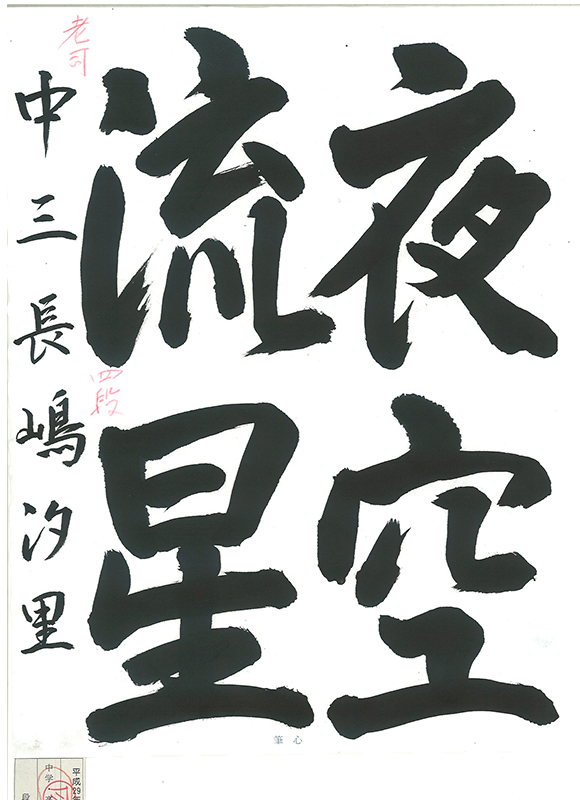 夜空
流星
中三 長嶋汐里
四段
心筆
平成29年
中学
段